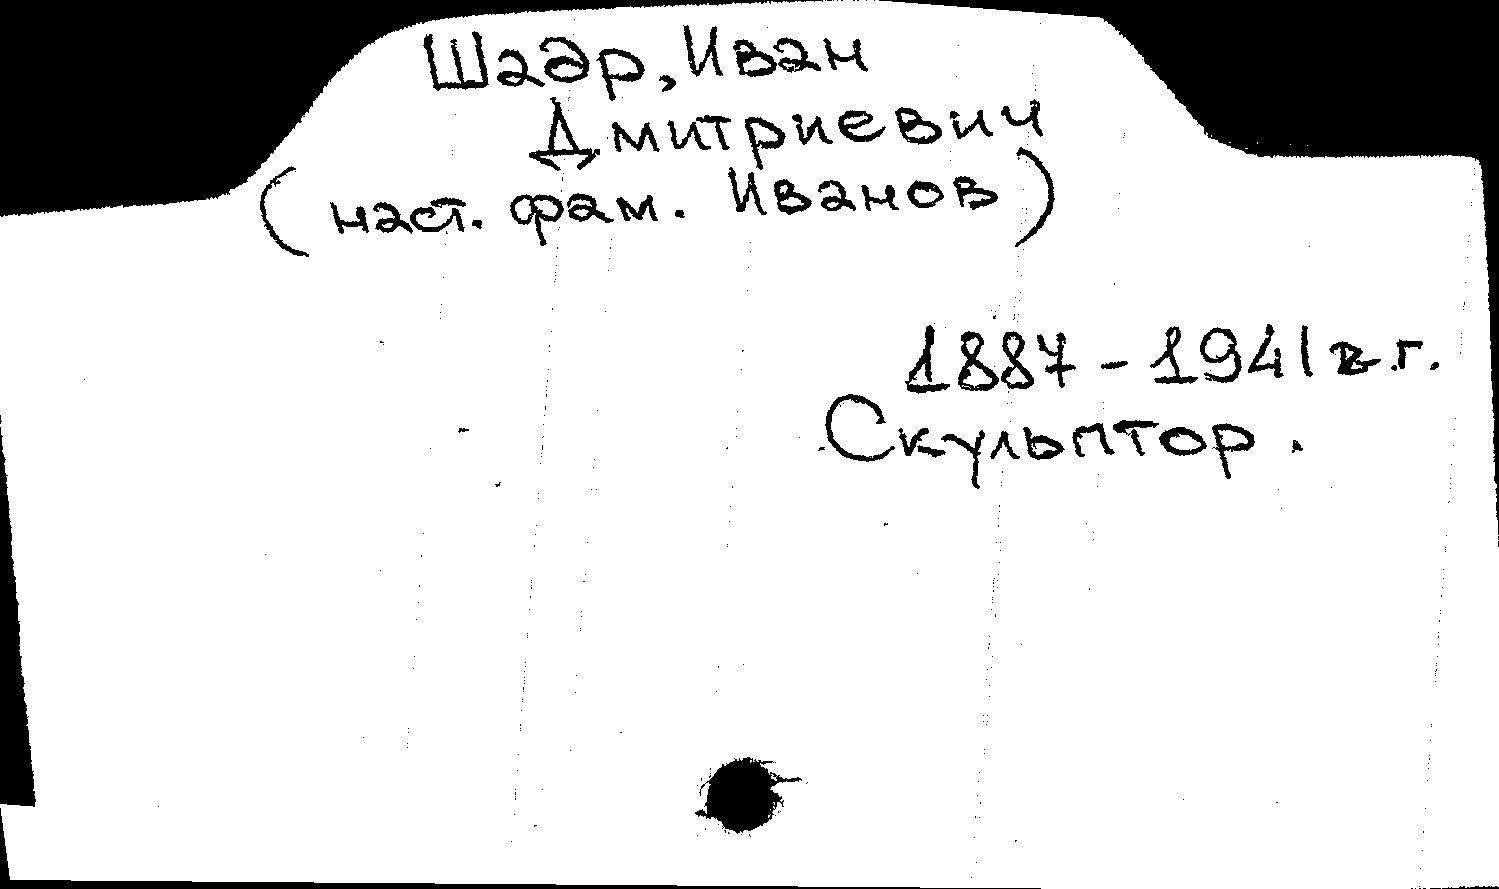 Шадр, Иван
Дмитриевич
(наст. фам. Иванов)
1887 - 1941 г.г.
Скульптор.